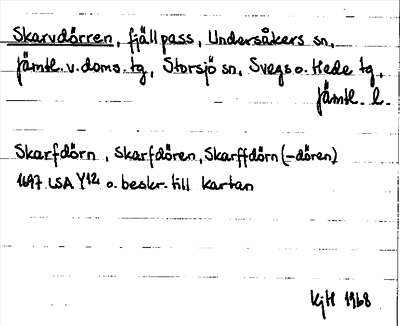 Skarvdörren, fjällpass, Undersåkers sn,
Jämtl. v. doms. tg, Storsjö sn, Svegs o. Hede tg,
Jämtl. l.
Skarfdörn, Skarfdören, Skarffdörn (-dören)
1697 LSA Y12 o. beskr. till kartan
KjH 1968